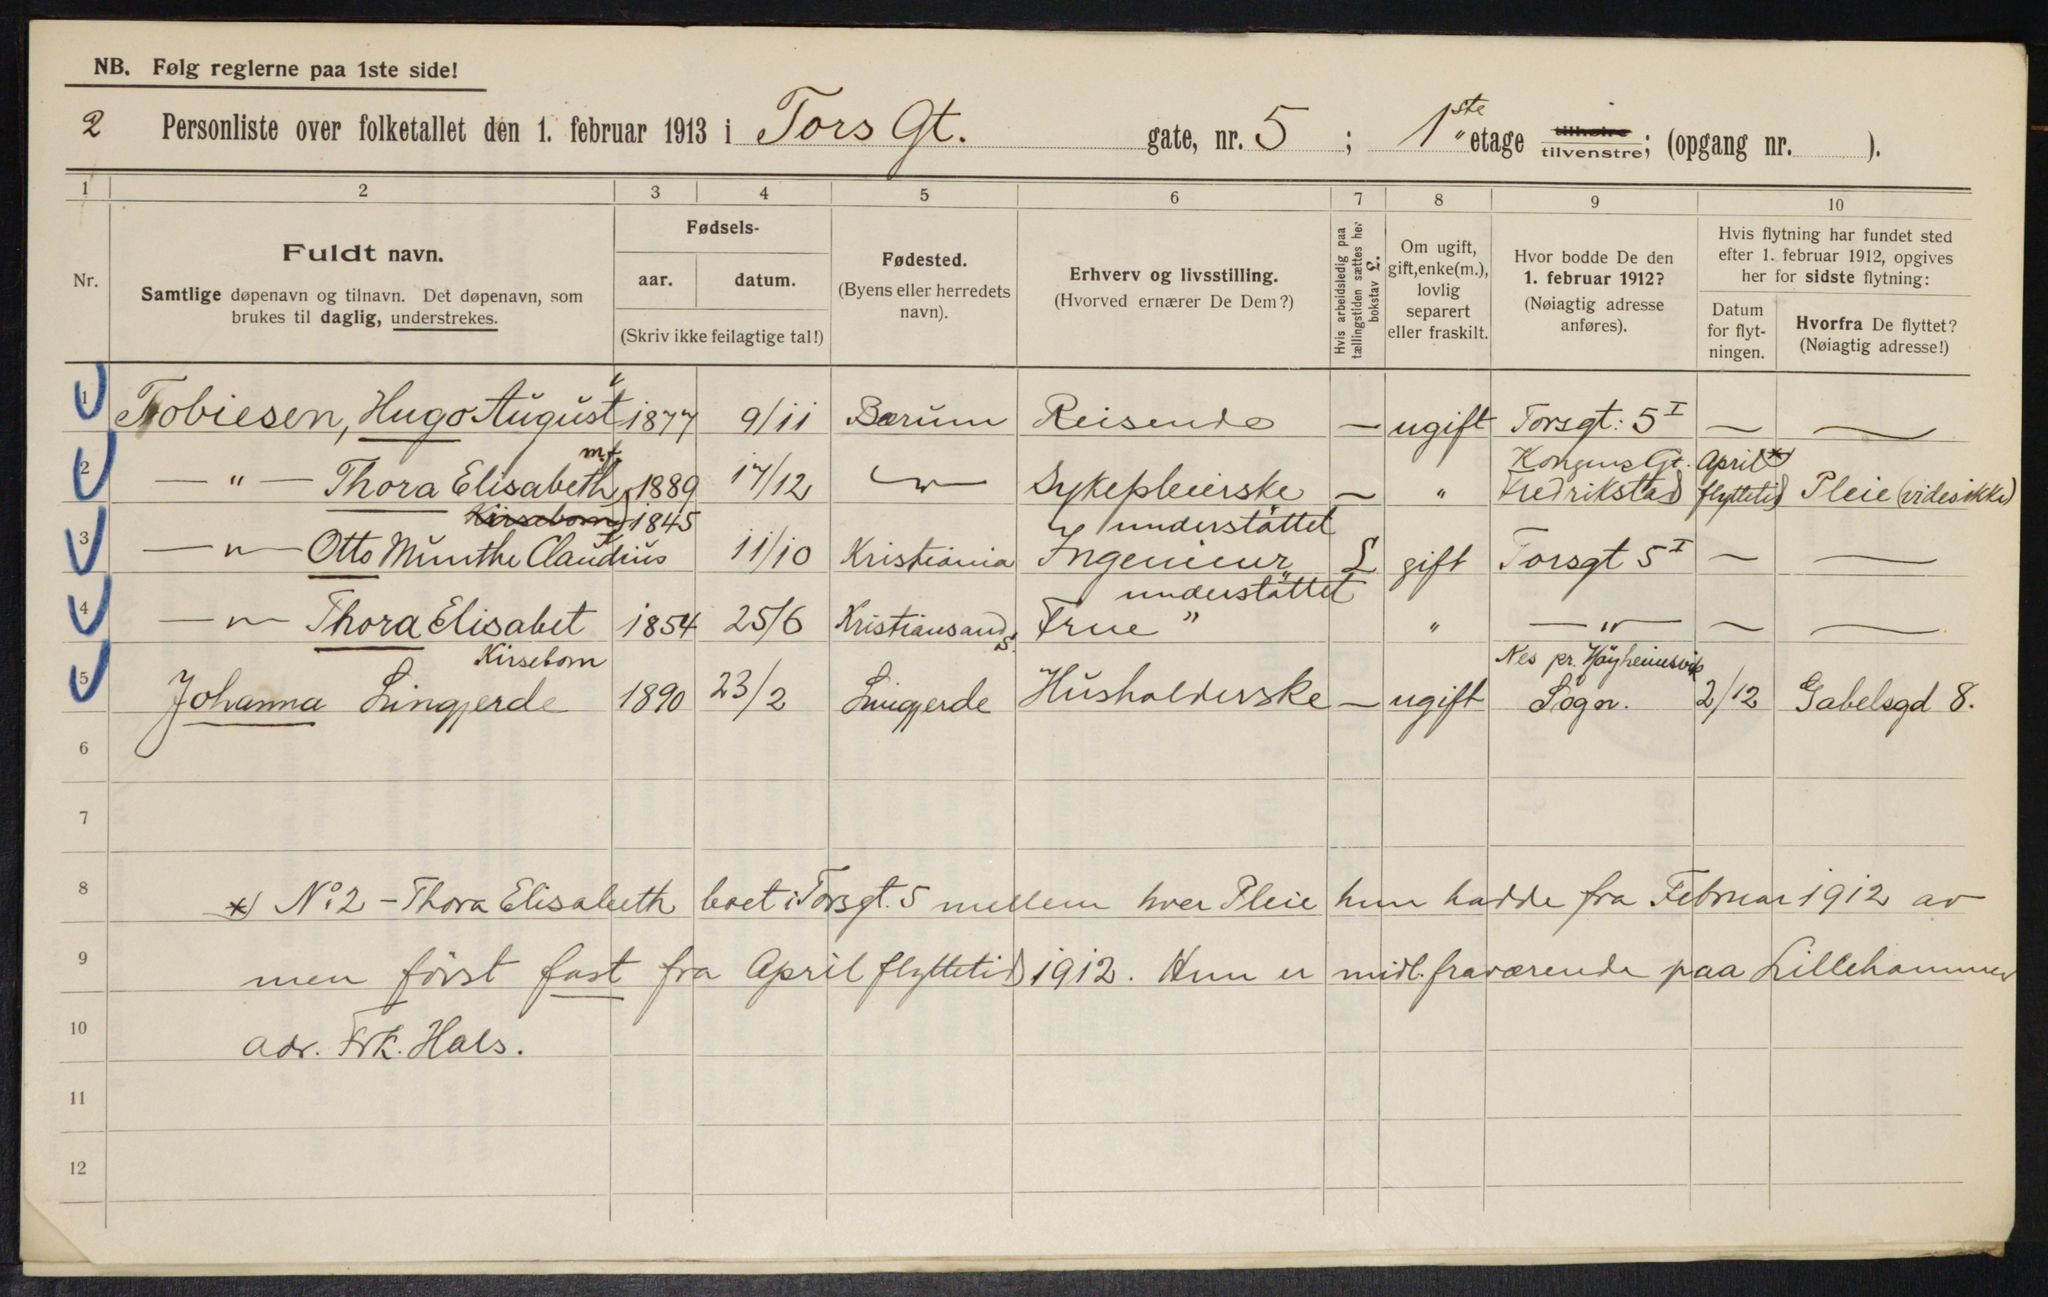 NB. Følg reglerne paa 1ste side!
2 Personliste over folketallet den 1. februar 1913 i Tors Gt. gate, nr. 5 ; 1ste " etage tilhøire tilvenstre; (opgang nr. ).
1 2 3 4 5 6 7 8 9 10
Nr.
Fuldt navn.
Samtlige døpenavn og tilnavn. Det døpenavn, som
brukes til daglig, understrekes.
Fødsels-
aar. datum.
(Skriv ikke feilagtige tal!)
Fødested.
(Byens eller herredets
navn).
Erhverv og livsstilling.
(Hvorved ernærer De Dem?)
Hvis arbeidsledig paa
tællingstiden sættes her
bokstav L.
Om ugift,
gift, enke(m.),
lovlig
separert
eller fraskilt.
Hvor bodde De den
1. februar 1912?
(Nøiagtig adresse
anføres).
Hvis flytning har fundet sted
efter 1. februar 1912, opgives
her for sidste flytning:
Datum
for flyt-
ningen.
Hvorfra De flyttet?
(Nøiagtig adresse!)
1 Tobiesen, Hugo August 1877 9/11 Bærum Reisende — ugift Torsgt: 5 I — —
mf. Kongens Gt. April *)
2 — " — Thora Elisabeth 1889 17/12 — " — Sykepleierske — " Fredrikstad flyttetid Pleie (vides ikke)
Kirsebom 1845 understöttet
3 — " — Otto Munthe Claudius 11/10 Kristiania Ingeniеur L gift Torsgt 5 I — —
understöttet
4 — " — Thora Elisabet 1854 25/6 Kristiansand S. Frue " " — " — — —
Kirsebom Nes pr. Høyheimsvik
5 Johanna Lingjerde 1890 23/2 Lingjerde Husholderske — ugift Sogn. 2/12 Gabelsgd 8.
6
7
8 *) No 2 - Thora Elisabeth boet i Torsgt. 5 mellem hver Pleie hun hadde fra Februar 1912 av
9 men först fast fra April flyttetid 1912. Hun er midl. fraværende paa Lillehammer
10 adr. Frk. Hals.
11
12